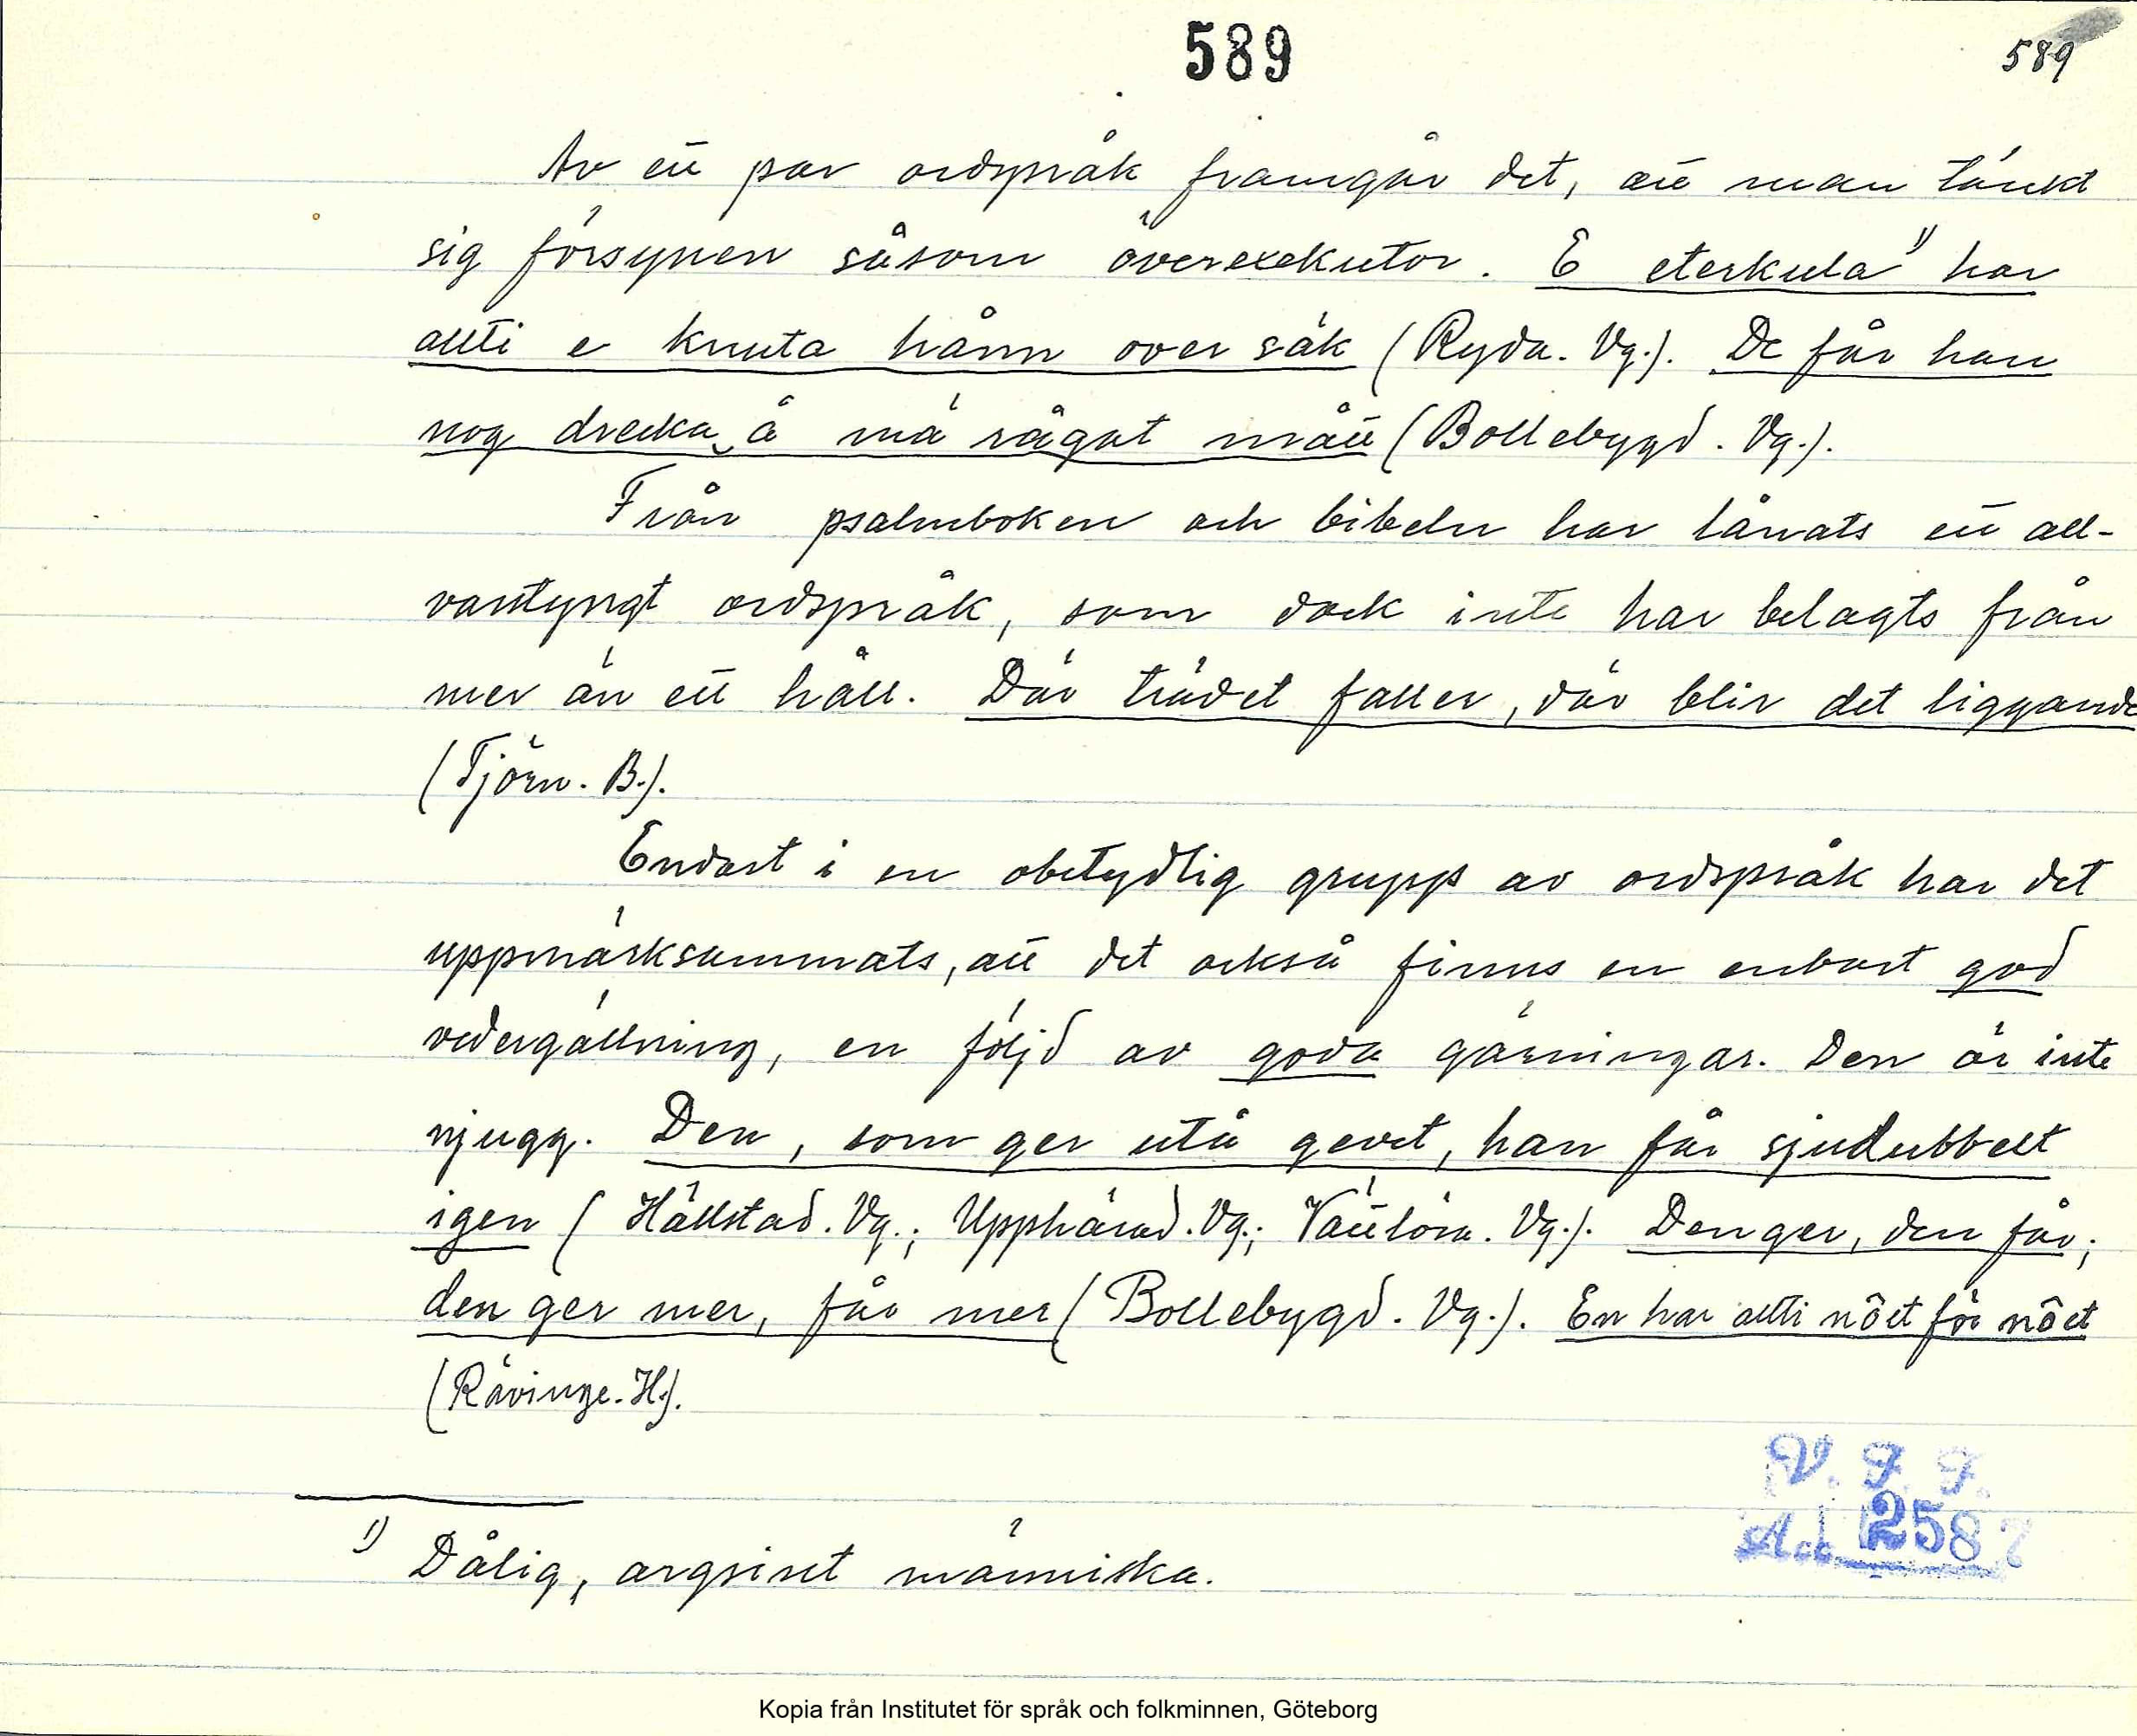 589
589
Av ett par ordspråk framgår det, att man tänkt
sig försynen såsom överexekutor. E eterkula 1) har
allti e knuta hånn over säk (Ryda. Vg.). De får han
nog drecka å mä någat mått (Bollebygd. Vg.).
Från psalmboken och bibeln har lånats ett all-
vartyngt ordspråk, som dock inte har belagts från
mer än ett håll. Där trädet faller, där blir det liggande
(Tjörn. B.).
Endast i en obetydlig grupp av ordspråk har det
uppmärksammats, att det också finns en enbart god
vedergällning, en följd av goda gärningar. Den är inte
njugg. Den, som ger utå gevet, han får sjudubbelt
igen (Hällstad. Vg.; Upphärad. Vg.; Vättlösa. Vg.). Den ger, den får;
den ger mer, får mer (Bollebygd. Vg.). En har allti nôet för nôet
(Rävinge. H.).
1) Dålig, argsint människa.
V. F. F.
Acc 2587
Kopia från Institutet för språk och folkminnen, Göteborg